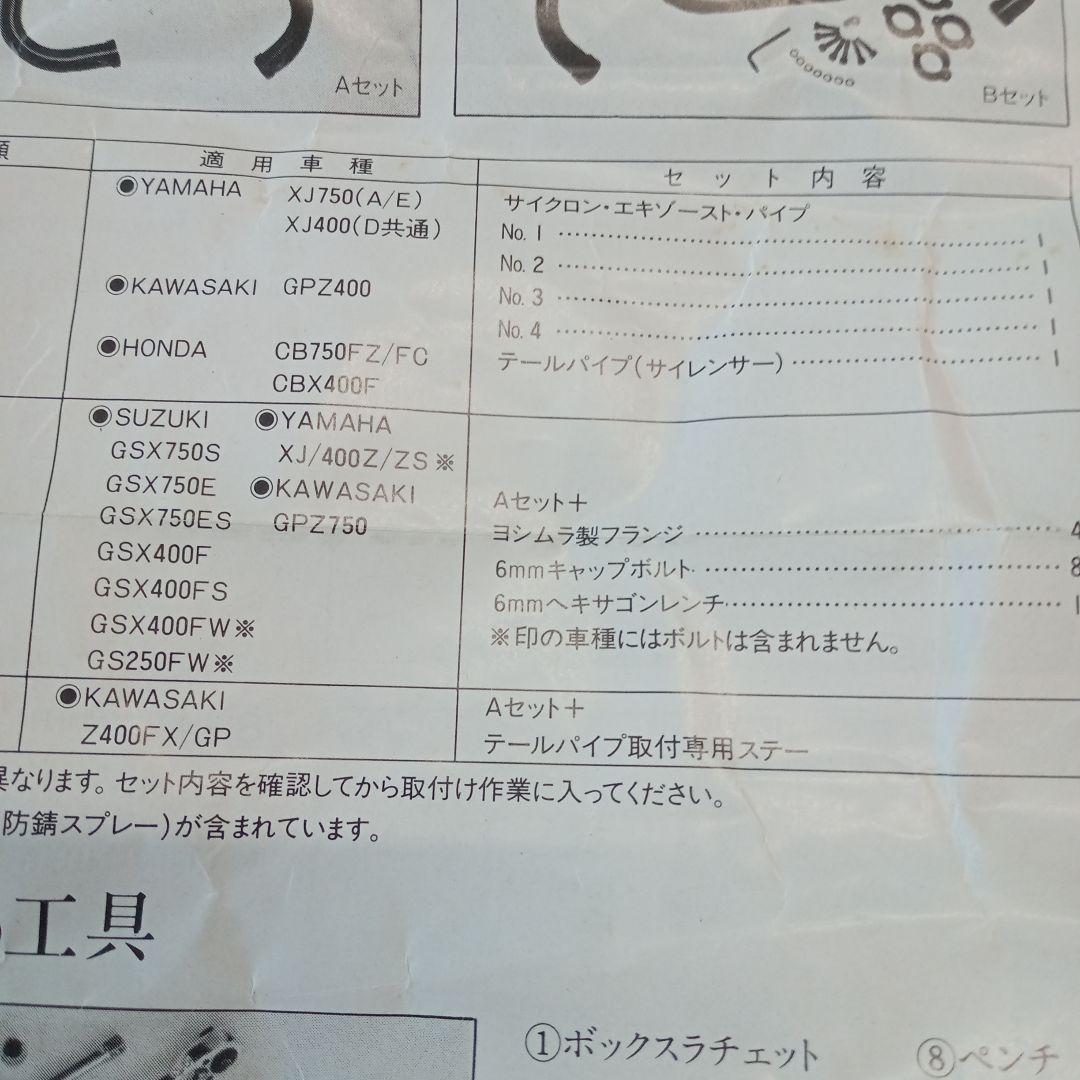 Aセット
Bセット
適用車種
セット内容
◉YAMAHA XJ750(A/E)
XJ400(D共通)
◉KAWASAKI GPZ400
◉HONDA CB750FZ/FC
CBX400F
サイクロン・エキゾースト・パイプ
No.1 …… 1
No.2 …… 1
No.3 …… 1
No.4 …… 1
テールパイプ(サイレンサー) …… 1
◉SUZUKI
GSX750S
GSX750E
GSX750ES
GSX400F
GSX400FS
GSX400FW※
GS250FW※
◉YAMAHA
XJ/400Z/ZS※
◉KAWASAKI
GPZ750
Aセット+
ヨシムラ製フランジ …… 4
6mmキャップボルト …… 8
6mmヘキサゴンレンチ …… 1
※印の車種にはボルトは含まれません。
◉KAWASAKI
Z400FX/GP
Aセット+
テールパイプ取付専用ステー
異なります。セット内容を確認してから取付け作業に入ってください。
防錆スプレー)が含まれています。
工具
①ボックスラチェット
⑧ペンチ